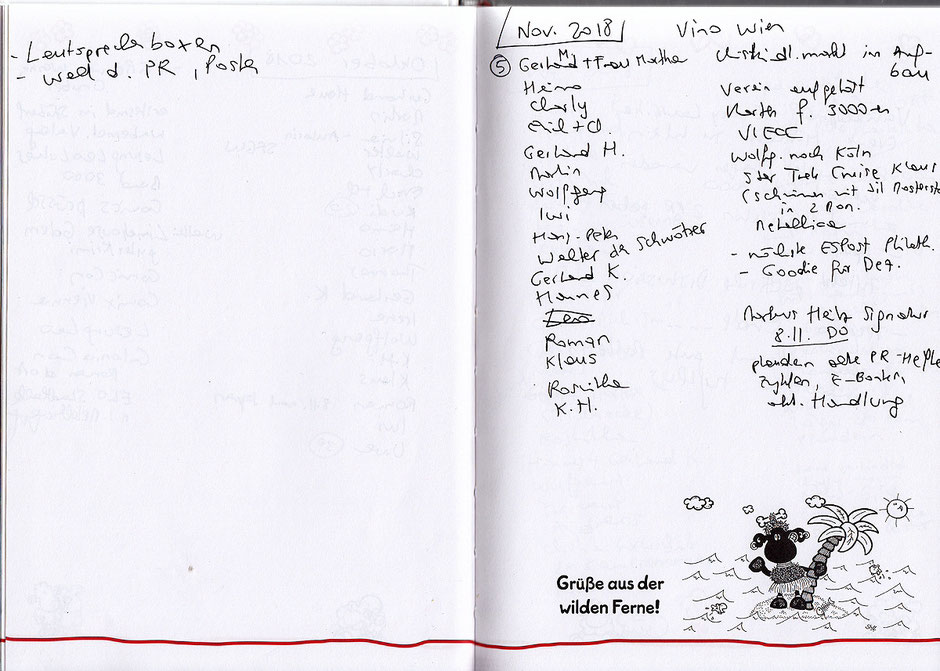 - Lautsprecherboxen
- weed d. PR, Poster
Nov. 2018 Vino Wien
⑤ Gerhard + Frau Martha
Mi
Heino
Charly
Erich + Cl.
Gerhard H.
Martin
Wolfgang
Iwi
Hans-Peter
Walter da Schwätzer
Gerhard K.
Hannes
Roman
Klaus
Roswitha
K.H.
Christkindlmarkt im Auf-
bau
Verein aufgelöst
Karten f. 3000-er
VIECC
Wolfg. nach Köln
Star Trek Cruise Klaus
in 2 Mon.
Metallica
- nächste ESPost Philath.
- Goodie für Dez.
Markus Heitz Signatur
8.11. DO
plaudern alte PR-Hefte
Zyklen, E-Books,
akt. Handlung
Grüße aus der
wilden Ferne!